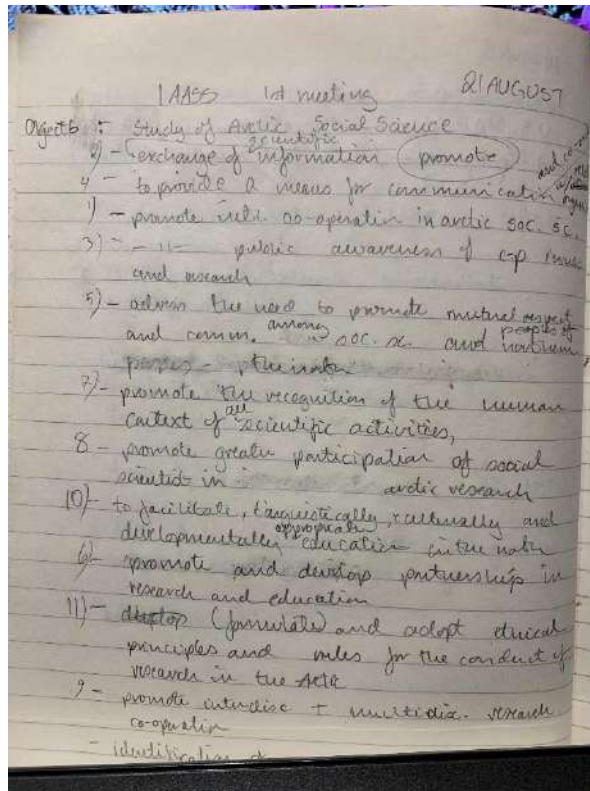 IAASS 1st meeting 21 AUGUST
Objects : Study of Arctic Social Science
2) - exchange of scientific information promote
4 - to provide a means for communication and co-
1) - promote intl. co-operation in arctic soc. sc.
3) - - 11 - public awareness of c-p issues
and research
5) - address the need to promote mutual respect
and comm. among soc. sc. and northern peoples of
the north
7) - promote the recognition of the human
context of all scientific activities,
8 - promote greater participation of social
scientist in arctic research
10) - to facilitate, linguistically, culturally and
developmentally appropriate education in the north
6) - promote and develop partnership in
research and education
11) - develop (formulate) and adopt ethical
principles and rules for the conduct of
research in the Arctic
9 - promote interdisc + multidix. research
co-operation
- identification of